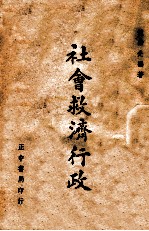 著
社會救濟行政
正中書局印行